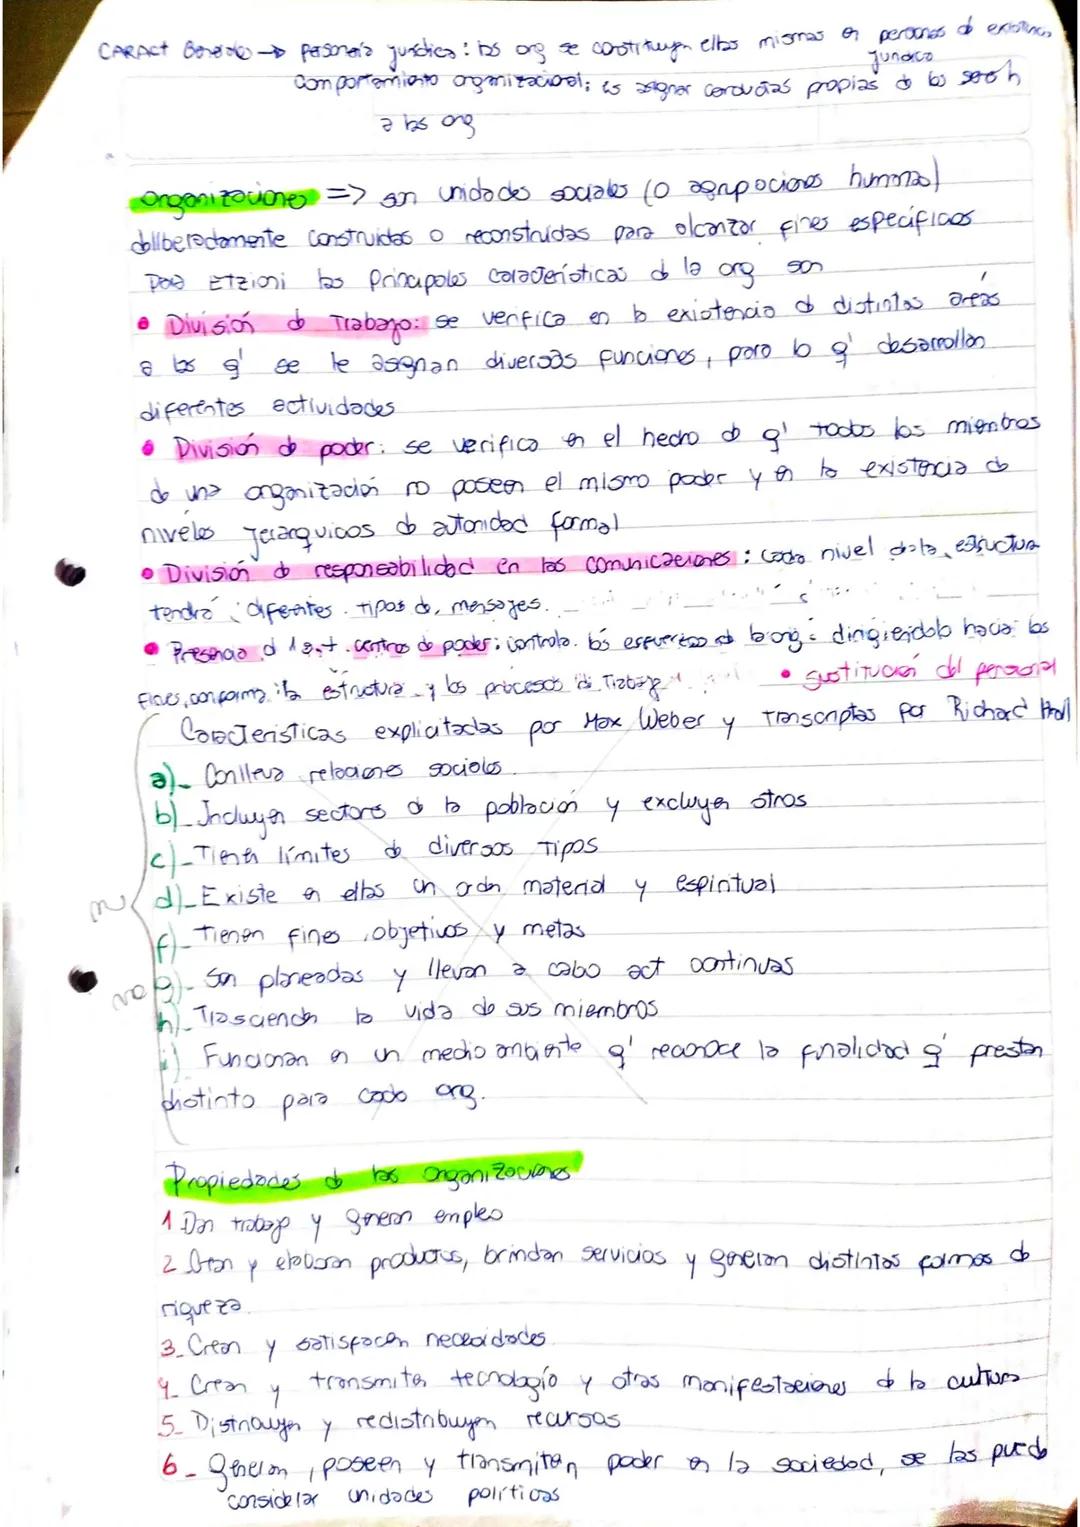 CARACT Generales → personería jurídica: las org se constituyen ellas mismas en personas d existencia
jurídica
comportamiento organizacional; es asignar conductas propias d los seres h
a las org
Organizaciones => son unidades sociales (o agrupaciones humanas)
deliberadamente construidas o reconstruidas para alcanzar fines específicos
para ETZIONI las Principales características d la org son
• División d Trabajo: se verifica en la existencia d distintas áreas
a las q' se le asignan diversas funciones, para lo q' desarrollan
diferentes actividades
• División de poder: se verifica en el hecho d q' todos los miembros
de una organización no poseen el mismo poder y en la existencia d
niveles jerárquicos d autoridad formal
• División d responsabilidad en las comunicaciones: cada nivel de la estructura
tendrá diferentes tipos d mensajes.
• Presencia d 1 o + centros de poder: controla los esfuerzos d la org dirigiéndolo hacia los
fines, conforma la estructura y los procesos d Trabajo • sustitución del personal
Características explicitadas por Max Weber y Transcriptas por Richard Hall
a)- Conlleva relaciones sociales
b)- Incluyen sectores d la población y excluyen otros
c)- Tienen límites d diversos tipos
d)- Existe en ellas un orden material y espiritual
f)- Tienen fines, objetivos y metas
no g)- Son planeadas y llevan a cabo act continuas
h)- Trascienden la vida de sus miembros
i) Funcionan en un medio ambiente q' reconoce la finalidad q' prestan
distinto para cada org.
Propiedades d las organizaciones
1 Dan trabajo y generan empleo
2 Crean y elaboran productos, brindan servicios y generan distintas formas d
riqueza.
3- Crean y satisfacen necesidades
4- Crean y transmiten tecnología y otras manifestaciones d la cultura
5- Distribuyen y redistribuyen recursos
6- Generan, poseen y transmiten poder en la sociedad, se las puede
considerar unidades políticas